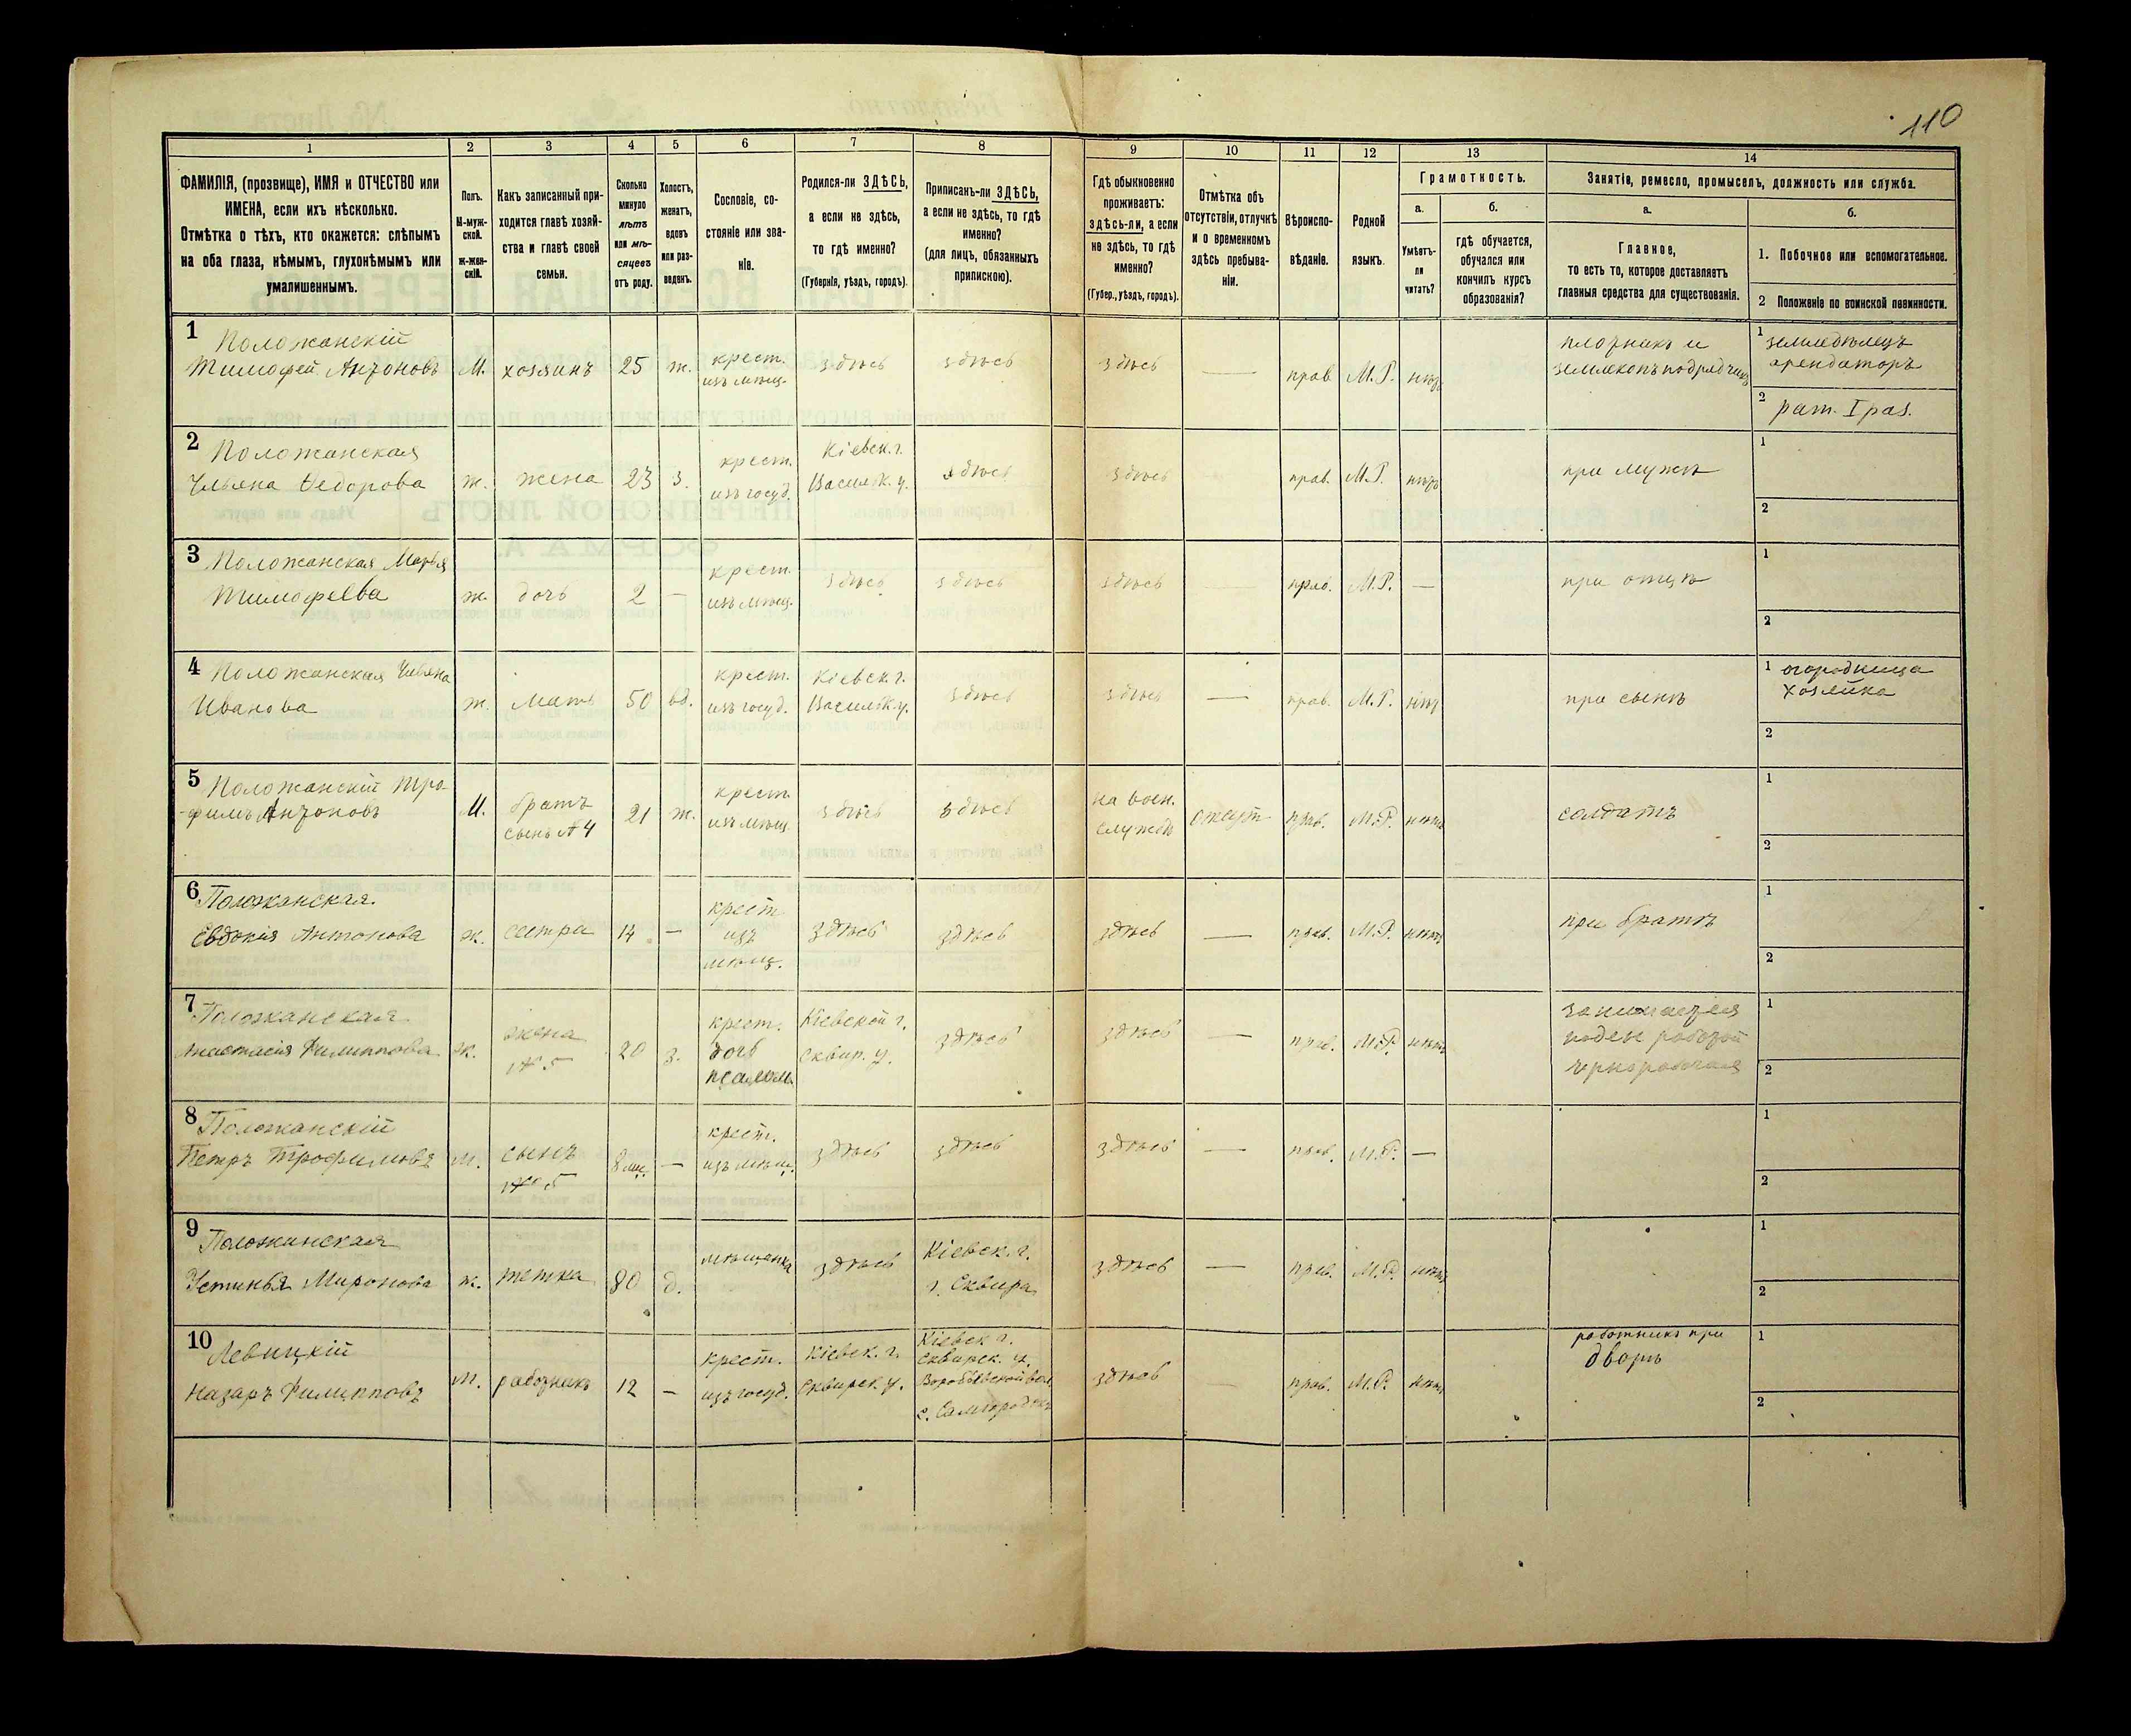 110
1 2 3 4 5 6 7 8 9 10 11 12 13 14
ФАМИЛІЯ, (прозвище), ИМЯ и ОТЧЕСТВО или
ИМЕНА, если ихъ нѣсколько.
Отмѣтка о тѣхъ, кто окажется: слѣпымъ
на оба глаза, нѣмымъ, глухонѣмымъ или
умалишеннымъ.
Полъ.
М-муж-
ской.
ж-жен-
скій.
Какъ записанный при-
ходится главѣ хозяй-
ства и главѣ своей
семьи.
Сколько
минуло
лѣтъ
или мѣ-
сяцевъ
отъ роду.
Холостъ,
женатъ,
вдовъ
или раз-
веденъ.
Сословіе, со-
стояніе или зва-
ніе.
Родился-ли ЗДѢСЬ,
а если не здѣсь,
то гдѣ именно?
(Губернія, уѣздъ, городъ).
Приписанъ-ли ЗДѢСЬ,
а если не здѣсь, то гдѣ
именно?
(для лицъ, обязанныхъ
припискою).
Гдѣ обыкновенно
проживаетъ:
здѣсь-ли, а если
не здѣсь, то гдѣ
именно?
(Губер., уѣздъ, городъ).
Отмѣтка объ
отсутствіи, отлучкѣ
и о временномъ
здѣсь пребыва-
ніи.
Вѣроиспо-
вѣданіе.
Родной
языкъ.
Грамотность.
а.
Умѣетъ-
ли
читать?
б.
гдѣ обучается,
обучался или
кончилъ курсъ
образованія?
Занятіе, ремесло, промыселъ, должность или служба.
а.
Главное,
то есть то, которое доставляетъ
главныя средства для существованія.
б.
1. Побочное или вспомогательное.
2 Положеніе по воинской повинности.
1 Положанскій
Тимофей Антоновъ М. хозяинъ 25 ж. крест.
изъ мѣщ. здѣсь здѣсь здѣсь — прав. М.Р. нѣтъ
плотникъ и
землекопъ подрядчикъ
1 земледѣлецъ
арендаторъ
2 рат. I раз.
2 Положанская
Ульяна Ѳедорова ж. жена 23 з. крест.
изъ госуд. Кіевск. г.
Васильк. у. здѣсь здѣсь — прав. М.Р. нѣтъ при мужѣ
1
2
3 Положанская Марья
Тимофеева ж. дочь 2 — крест.
изъ мѣщ. здѣсь здѣсь здѣсь — прав. М.Р. — при отцѣ
1
2
4 Положанская Ульяна
Иванова ж. мать 50 вд. крест.
изъ госуд. Кіевск. г.
Васильк. у. здѣсь здѣсь — прав. М.Р. нѣтъ при сынѣ
1 огородница
хозяйка
2
5 Положанскій Тро-
-фимъ Антоновъ М. братъ
сынъ № 4 21 ж. крест.
изъ мѣщ. здѣсь здѣсь на воен.
службѣ отсут. прав. М.Р. нѣтъ солдатъ
1
2
6 Положанская
Евдокія Антонова ж. сестра 14 — крест
изъ
мѣщ. здѣсь здѣсь здѣсь — прав. М.Р. нѣтъ при братѣ
1
2
7 Положанская
Анастасія Филиппова ж. жена
№ 5 20 з. крест.
дочь
псалом. Кіевской г.
Сквир. у. здѣсь здѣсь — прав. М.Р. нѣтъ
занимается
поден работой
чернорабочая
1
2
8 Положанскій
Петръ Трофимовъ м. сынъ
№ 5 8 мц. — крест.
изъ мѣщ. здѣсь здѣсь здѣсь — прав. М.Р. —
1
2
9 Положанская
Устинья Миронова ж. тетка 80 д. мѣщанка здѣсь Кіевск. г.
г. Сквира здѣсь — прав. М.Р. нѣтъ
1
2
10 Левицкій
Назаръ Филипповъ М. работникъ 12 — крест.
изъ госуд. Кіевск. г.
Сквирск. у. Кіевск г.
Сквирск. у.
Воробьевской вол.
с. Самгородокъ здѣсь — прав. М.Р. нѣтъ
работникъ при
дворѣ
1
2